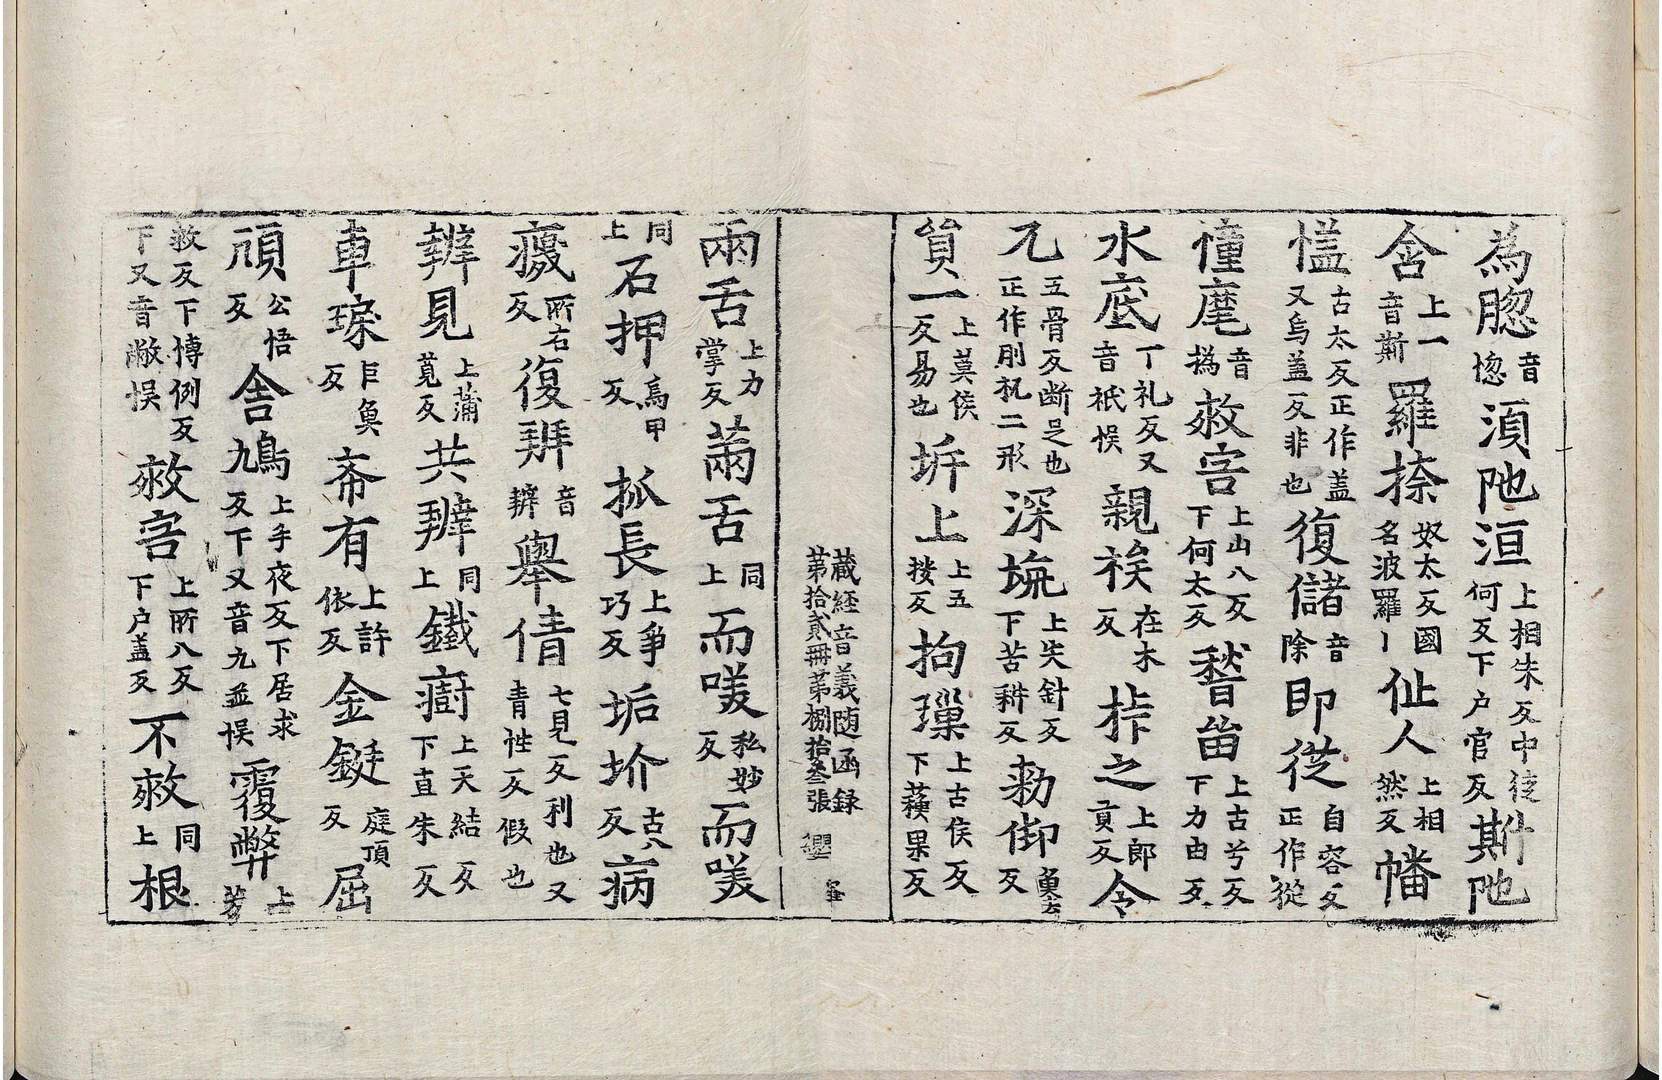 為𦡁音愡須阤洹上相朱反中徒何反下户官反斯阤
含上一音斯羅捺奴太反國名波羅〡仙人上相然反幡
慲古太反正作盖又烏盖反非也復儲音除即從自容反正作從
憧麾音撝救害上山八反下何太反嵇畄上古兮反下力由反
水底丁礼反又音祇悮親族在木反桙之上郎貢反令
兀五骨反断足也正作刖杌二形深坑上失針反下苦耕反勑御魚去反
貿一上莫侯反易也坼上上五揆反拘璅上古侯反下蘓果反
藏経音義随函録
第拾貳冊第捌拾叁張
兩舌上力掌反䓣舌同上而唉私妙反而唉
同上石押烏甲反抓長上爭巧反垢圿古八反病
癁所右反復辬音辬舉倩七見反利也又青性反假也
辬見上蒲莧反共辬同上鐵㕑上天結反下直朱反
車璖巨魚反斋有上許依反金鋌庭頂反屈
頋公悟反舎鳩上手夜反下居求反下又音九並悮覆弊上芳
救反下博例反下又音敝悮救害上所八反下户盖反不救同上根